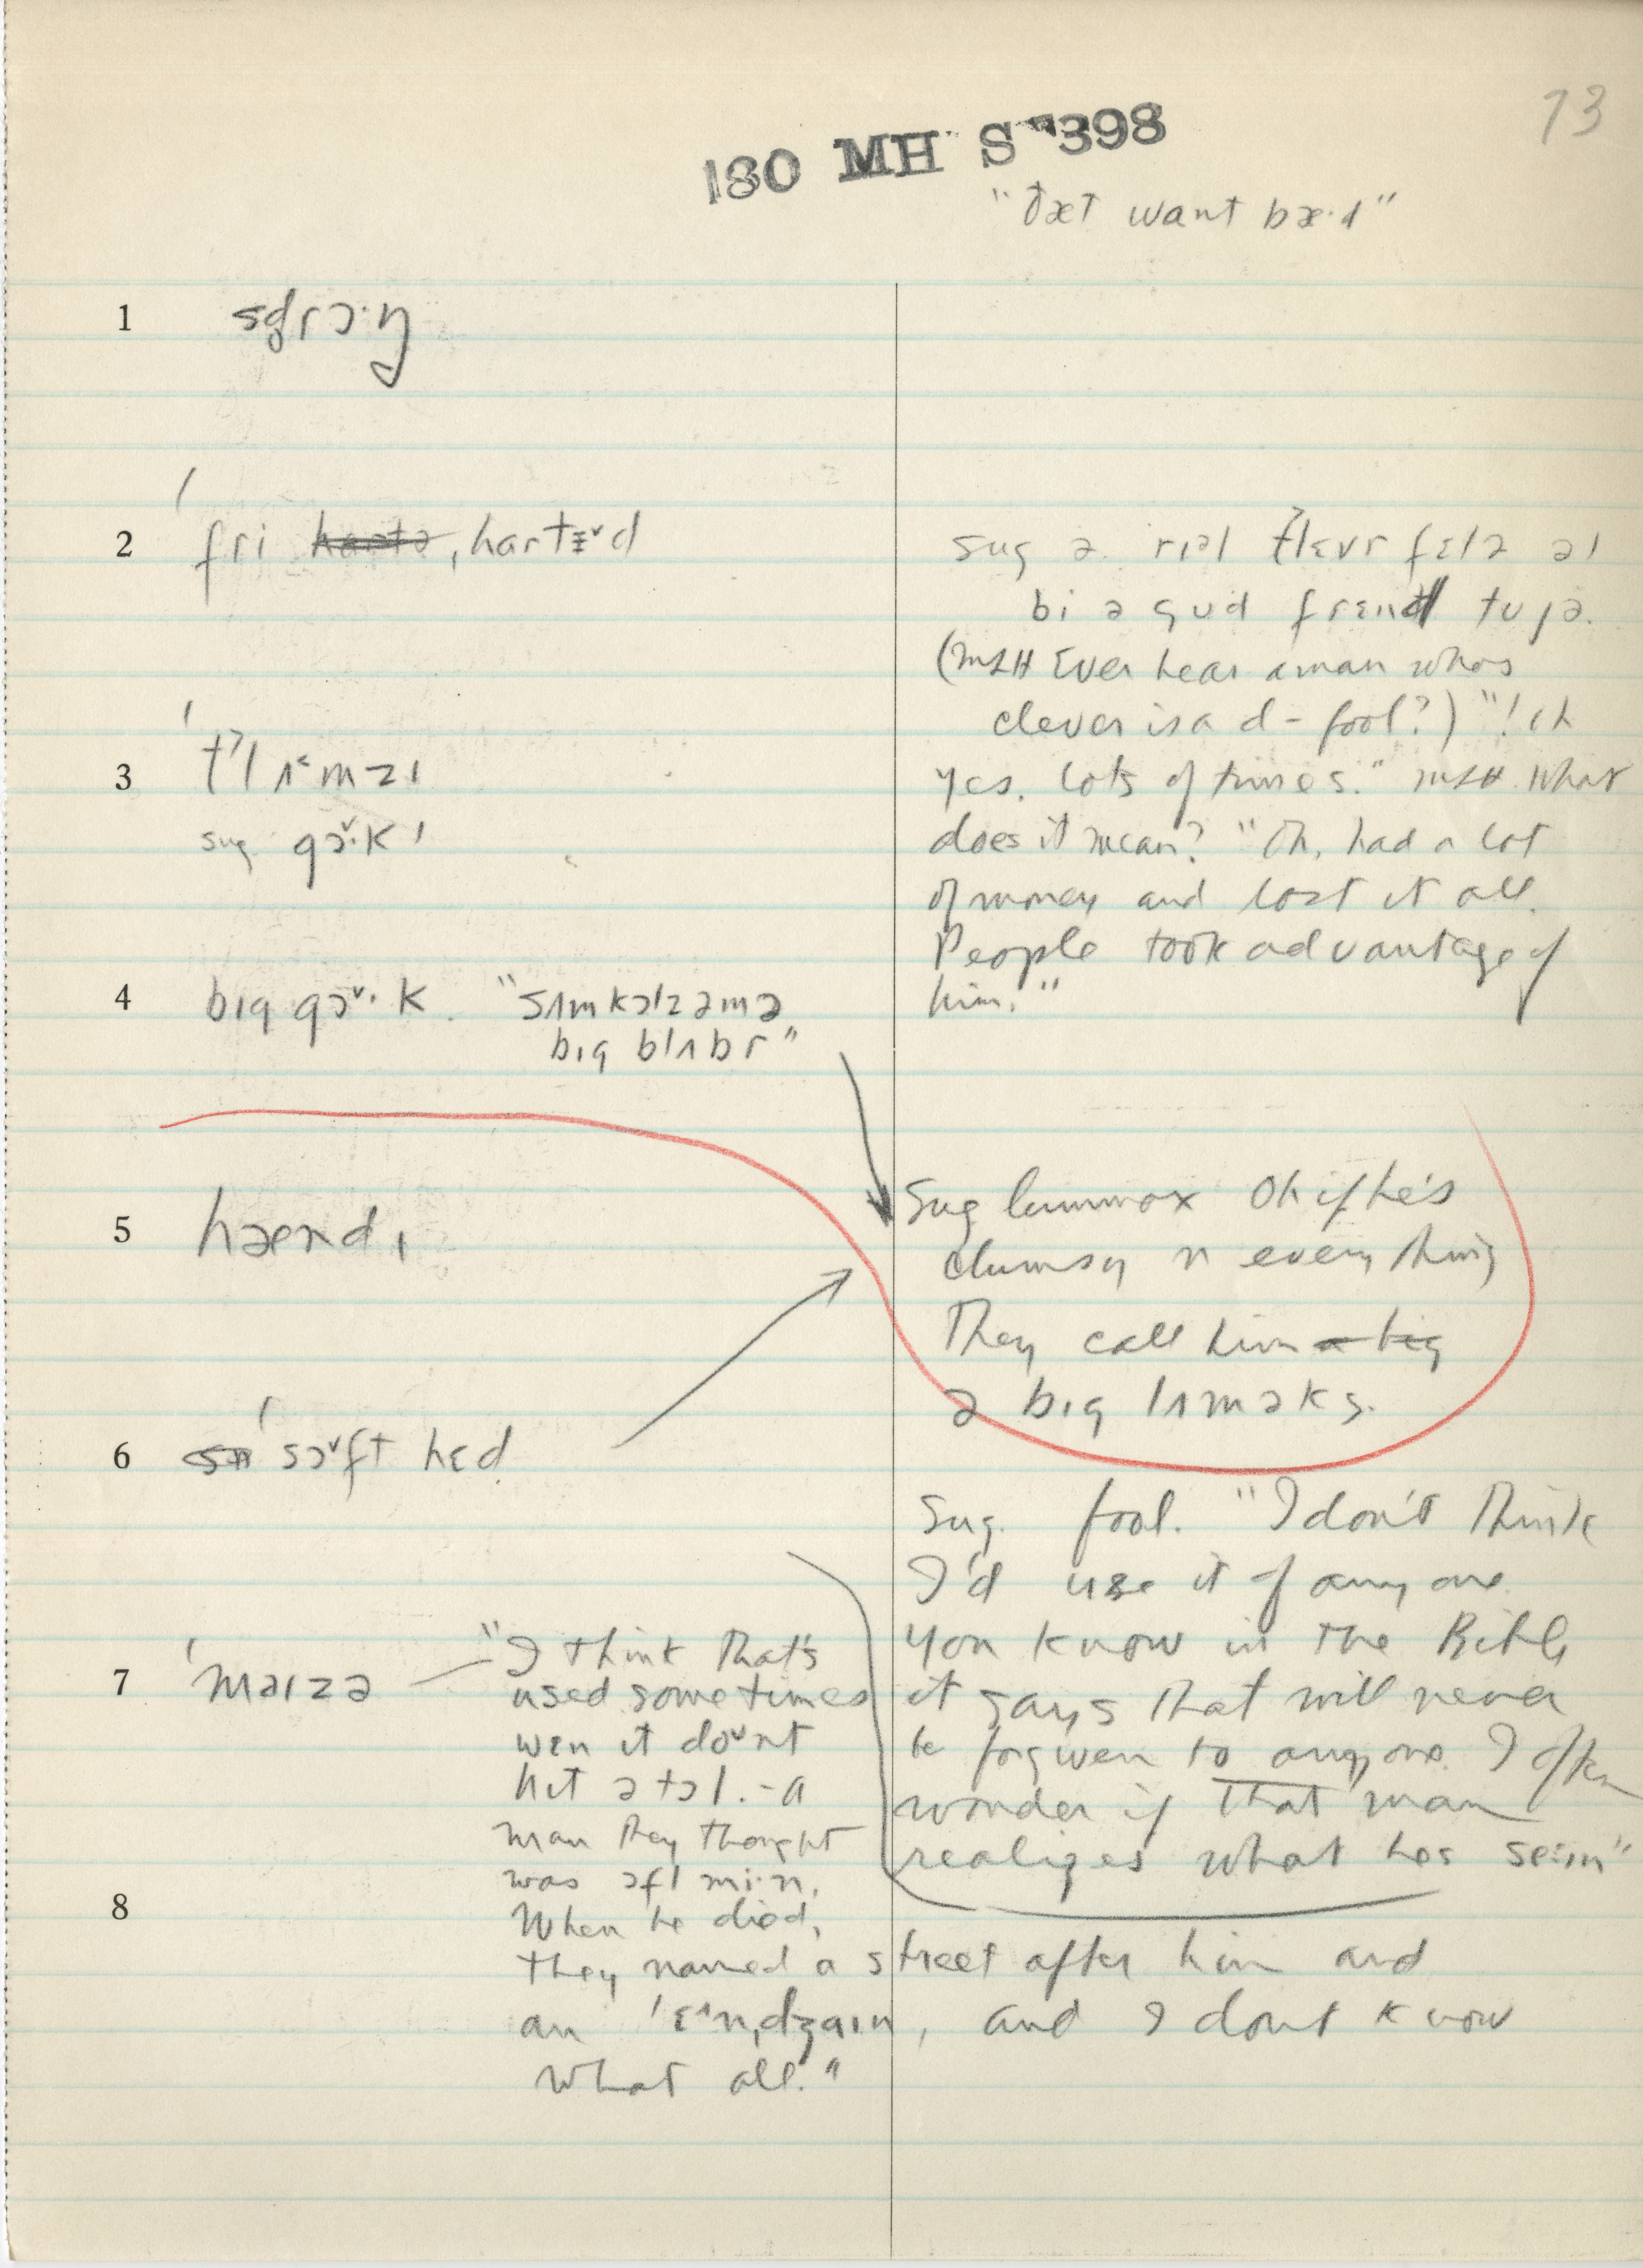 73
180 MH S 398
"ðæt want bæ·d"
1 sdrɔ·ŋ
2 ˈfri harta ˌhartɪ̵ˇd
3 ˈt̓lʌ˂mzɪ
sug gɔˇ·kɪ
4 bɪg gɔˇ·k. "sʌmkɔlzəmə
bɪg blʌbr"
5 hændɪ
6 ˈsɔˇft hɛd
7 ˈmaɪzə — "I think that's
used sometimes
wɛn it doᵛnt
hɪt ətɔl. - a
man they thought
was ɔfl mi·n.
When he died,
they named a street after him and
an ˈɛ^nˌdʒaɪn, and I dont know
what all."
8
sug ə rɪəl t̓lɛvr fɛlə əl
bi ə gud frɛnd tu jə.
(MLH Ever hear a man whos
clever is a d- fool?) "! ch
yes. lots of times." MLH. What
does it mean? "Oh, had a lot
of money and lost it all.
People took advantage of
him."
Sug lummox Oh if he's
clumsy n everything
They call him a big
ə bɪg lʌməks.
Sug. fool. "I don't think
I'd use it of anyone
you know in the Bible
it says that will never
be forgiven to anyone. I often
wonder if that man
realizes what hes se:ɪn"